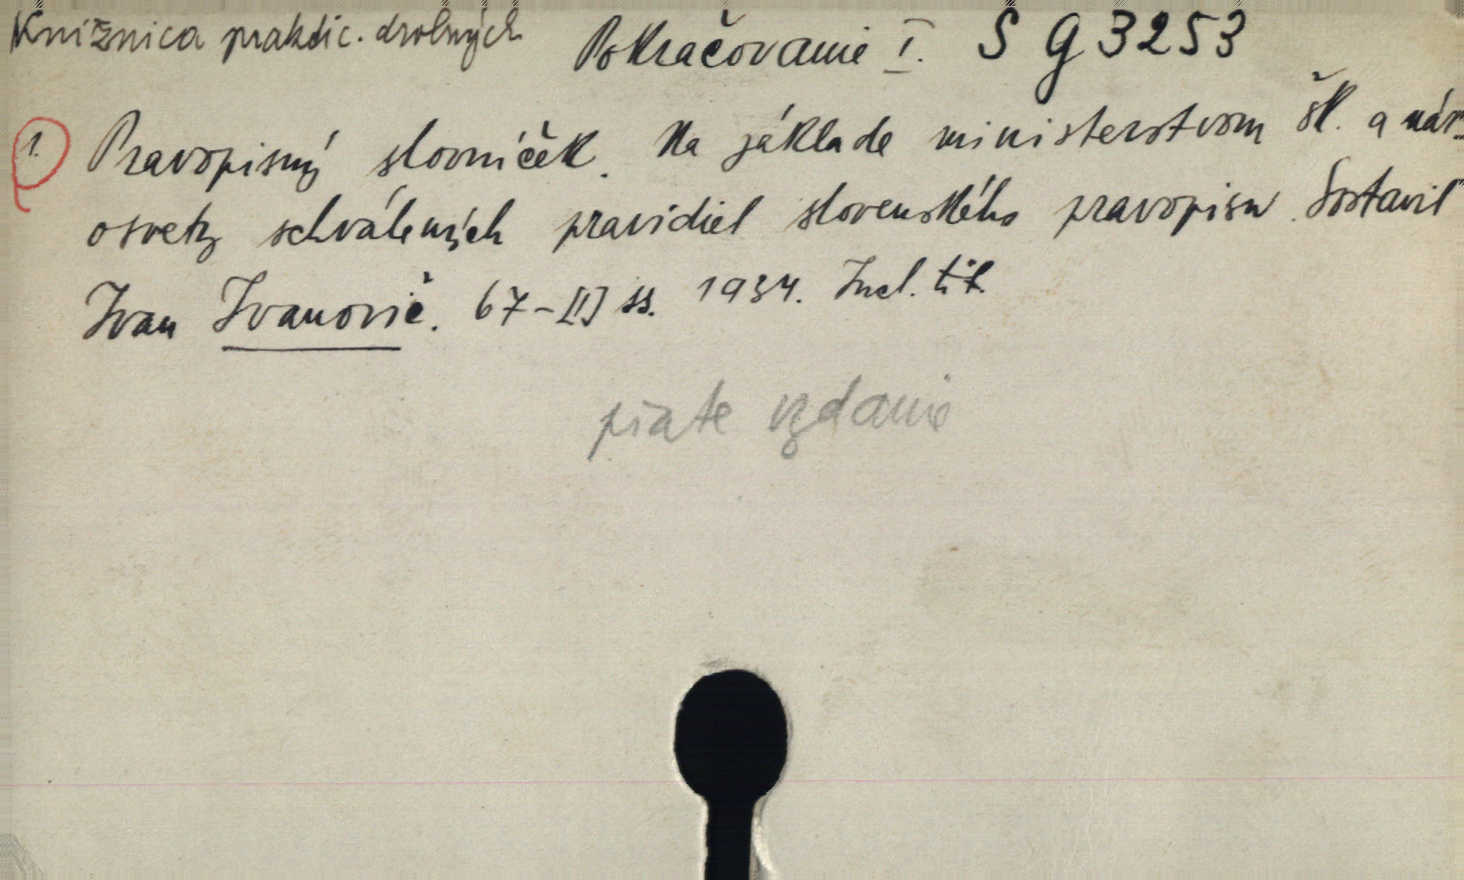 Knižnica praktic. drobných Pokračovanie I. S G 3253
1. Pravopisný slovníček. Na základe ministerstvom šk. a nár.
osvety schválených pravidiel slovenského pravopisu. Sostavil
Ivan Ivanovič. 67-[I] ss. 1934. Incl. tit.
piate vydanie